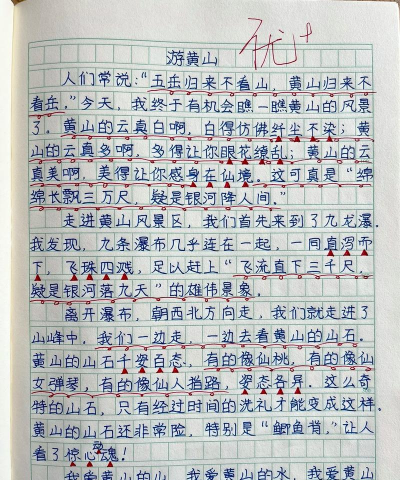 游黄山
优+
人们常说：“五岳归来不看山，黄山归来不
看岳。”今天，我终于有机会瞧一瞧黄山的风景
了。黄山的云真白啊，白得仿佛纤尘不染；黄
山的云真多啊，多得让你眼花缭乱；黄山的云
真美啊，美得让你感身在仙境。这可真是“绵
绵长飘三万尺，疑是银河降人间。”
走进黄山风景区，我们首先来到了九龙瀑。
我发现，九条瀑布几乎连在一起，一同直泻而
下，飞珠四溅，足以赶上“飞流直下三千尺，
疑是银河落九天”的雄伟景象。
离开瀑布，朝西北方向走，我们就走进了
山峰中。我们一边走，一边去看黄山的山石。
黄山的山石千姿百态，有的像仙桃，有的像仙
女弹琴，有的像仙人指路，姿态各异。这么奇
特的山石，只有经过时间的洗礼才能变成这样。
黄山的山石还非常险，特别是“鲫鱼背”，让人
看了惊心动魂！
我爱黄山的山，我爱黄山的水，我爱黄山